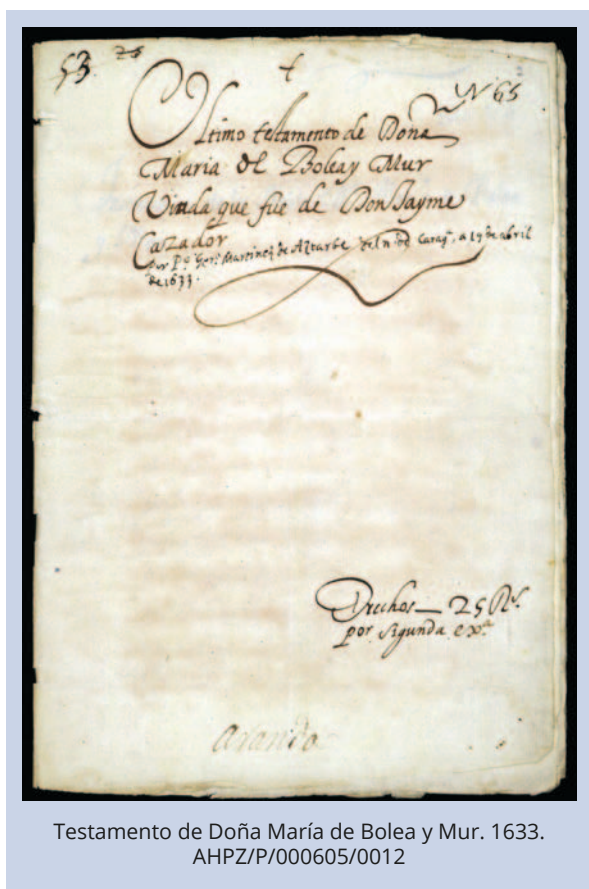 53.
Nº 65
Vltimo testamento de Doña
Maria de Bolea y Mur
Viuda que fue de Don Jayme
Cazador
por Pº Gerº Martinez de Azturbe del nº de Çaragª, a 19 de abril
de 1633.
Drechos — 25 Rs.
por sigunda exª
Aranda
Testamento de Doña María de Bolea y Mur. 1633.
AHPZ/P/000605/0012